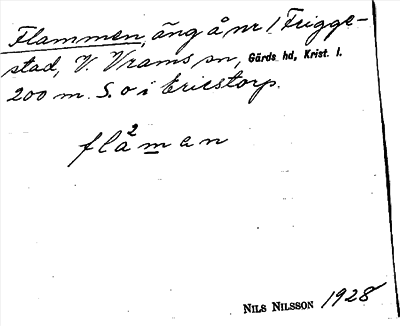 Flammen, äng å nr 1 Frigge-
stad, V. Vrams sn, Gärds hd, Krist. l.
200 m. S. o i Ericstorp.
fla²man
NILS NILSSON 1928